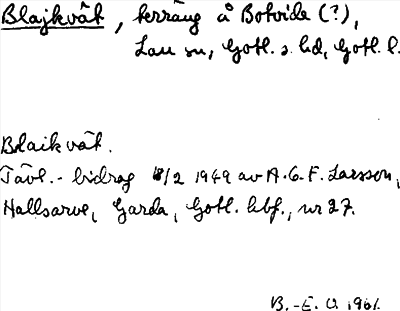 Blajkvät, terräng å Botvide (?),
Lau sn, Gotl. s. hd, Gotl. l.
Blaikvät.
Tävl.-bidrag 8/2 1949 av A.G.F. Larsson,
Hallsarve, Garda, Gotl. kbf., nr 27.
B.-E. O. 1961.